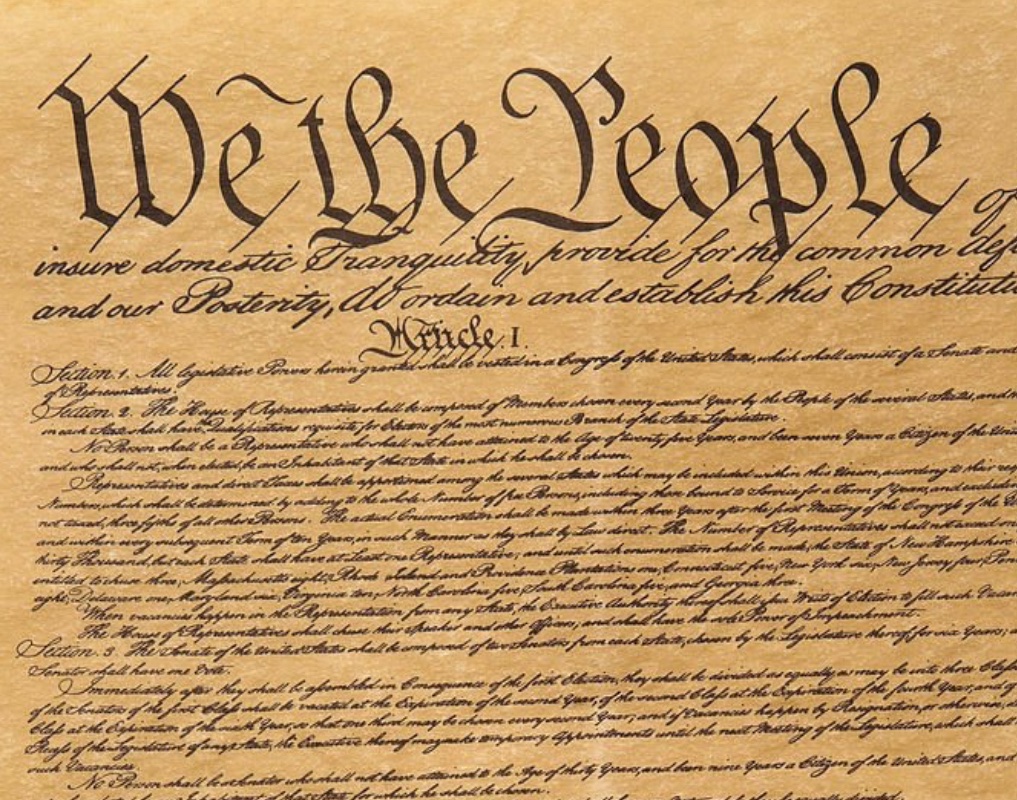 We the People of
insure domestic Tranquility, provide for the common def
and our Posterity, do ordain and establish this Constituti
Article. I.
Section. 1. All legislative Powers herein granted shall be vested in a Congress of the United States, which shall consist of a Senate and
of Representatives.
Section. 2. The House of Representatives shall be composed of Members chosen every second Year by the People of the several States, and
in each State shall have Qualifications requisite for Electors of the most numerous Branch of the State Legislature.
No Person shall be a Representative who shall not have attained to the Age of twenty five Years, and been seven Years a Citizen of the Unit
and who shall not, when elected, be an Inhabitant of that State in which he shall be chosen.
Representatives and direct Taxes shall be apportioned among the several States which may be included within this Union, according to their res
Numbers, which shall be determined by adding to the whole Number of free Persons, including those bound to Service for a Term of Years, and excludin
not taxed, three fifths of all other Persons. The actual Enumeration shall be made within three Years after the first Meeting of the Congress of the
and within every subsequent Term of ten Years, in such Manner as they shall by Law direct. The Number of Representatives shall not exceed one
thirty Thousand, but each State shall have at Least one Representative; and until such enumeration shall be made, the State of New Hampshire
entitled to chuse three, Massachusetts eight, Rhode Island and Providence Plantations one, Connecticut five, New York six, New Jersey four, Pen
eight, Delaware one, Maryland six, Virginia ten, North Carolina five, South Carolina five, and Georgia three.
When vacancies happen in the Representation from any State, the Executive Authority thereof shall issue Writs of Election to fill such Vacan
The House of Representatives shall chuse their Speaker and other Officers; and shall have the sole Power of Impeachment.
Section. 3 The Senate of the United States shall be composed of two Senators from each State, chosen by the Legislature thereof, for six Years;
Senator shall have one Vote.
Immediately after they shall be assembled in Consequence of the first Election, they shall be divided as equally as may be into three Class
of the Senators of the first Class shall be vacated at the Expiration of the second Year, of the second Class at the Expiration of the fourth Year, and of
Class at the Expiration of the sixth Year, so that one third may be chosen every second Year; and if Vacancies happen by Resignation, or otherwise, d
Recess of the Legislature of any State, the Executive thereof may make temporary Appointments until the next Meeting of the Legislature, which shall
such Vacancies.
No Person shall be a Senator who shall not have attained to the Age of thirty Years, and been nine Years a Citizen of the United States, and
Inhabitant of that State for which he shall be chosen.